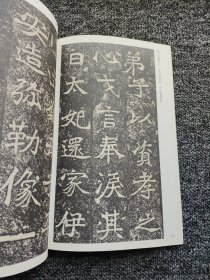 弟子以資孝之
心戈言奉淚其
日太妃還家伊
安造弥勒像一